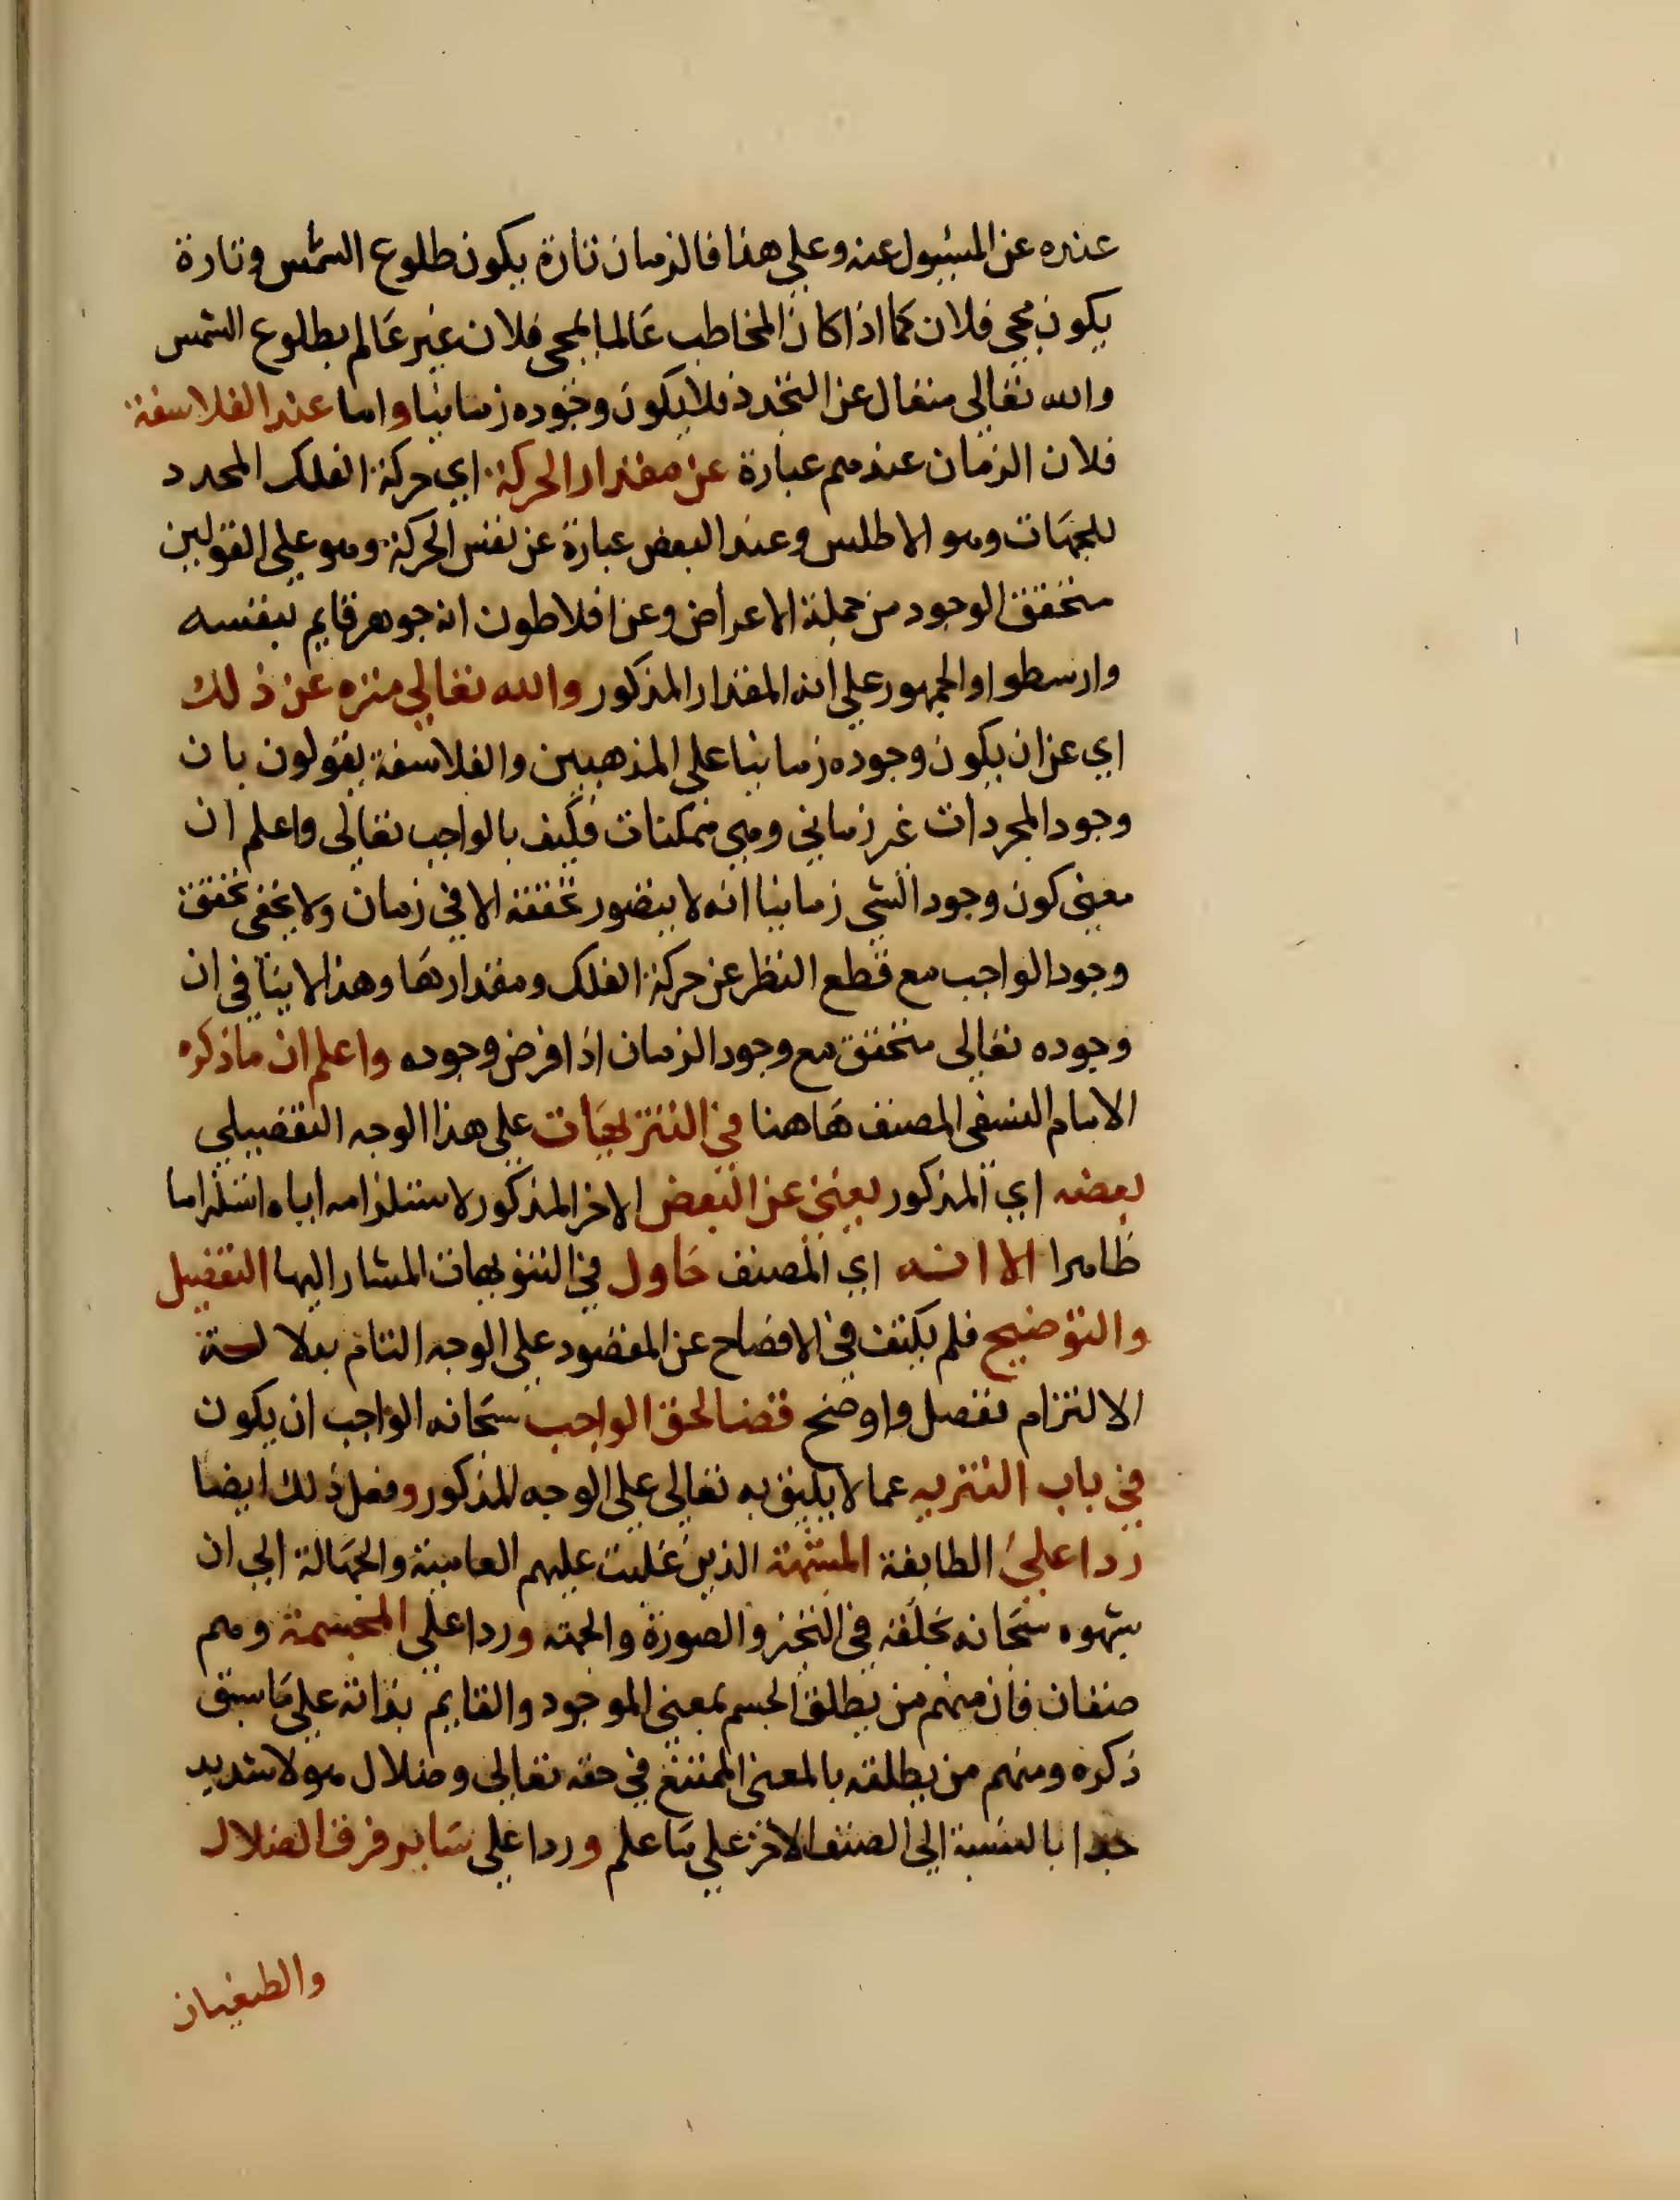 غيره عن المسئول عنه وعلى هذا فالزمان تارة يكون طلوع الشمس وتارة
يكون مجي فلان كما اذا كان المخاطب عالما بمجي فلان غير عالم بطلوع الشمس
والله تعالى متعال عن التجدد فلا يكون وجوده زمانيا واما عند الفلاسفة
فلان الزمان عندهم عبارة عن مقدار الحركة اي حركة الفلك المحدد
للجهات وهو الاطلس وعند البعض عبارة عن نفس الحركة وهو على القولين
متحقق الوجود من جملة الاعراض وعن افلاطون انه جوهر قايم بنفسه
وارسطوا والجمهور على انه المقدار المذكور والله تعالى منزه عن ذلك
اي عن ان يكون وجوده زمانيا على المذهبين والفلاسفة يقولون بان
وجود المجردات غير زماني وهي ممكنات فكيف بالواجب تعالى واعلم ان
معنى كون وجود الشي زمانيا انه لا يتصور تحققه الا في زمان ولا يخفى تحقق
وجود الواجب مع قطع النظر عن حركة الفلك ومقدارها وهذا لا ينافي ان
وجوده تعالى متحقق مع وجود الزمان اذا فرض وجوده واعلم ان ما ذكره
الامام النسفي المصنف هاهنا في التنزيهات على هذا الوجه التفصيلي
بعضه اي المذكور يغني عن البعض الاخر المذكور لاستلزامه اياه استلزاما
ظاهرا الا انه اي المصنف حاول في التنزيهات المشار اليها التفصيل
والتوضيح فلم يكتف في الافصاح عن المقصود على الوجه التام بدلالة
الالتزام ففصل واوضح قضا لحق الواجب سبحانه الواجب ان يكون
في باب التنزيه عما لا يليق به تعالى على الوجه المذكور وفعل ذلك ايضا
ردا على الطايفة المشبهة الذين غلبت عليهم العامية والجهالة الى ان
شبهوه سبحانه بخلقه في التحيز والصورة والجهة وردا على المجسمة وهم
صنفان فان منهم من يطلق الجسم بمعنى الموجود والقايم بذاته على ما سبق
ذكره ومنهم من يطلقه بالمعنى الممتنع في حقه تعالى وضلال هولا شديد
جدا بالنسبة الى الصنف الاخر على ما علم وردا على ساير فرق الضلال
والطغيان